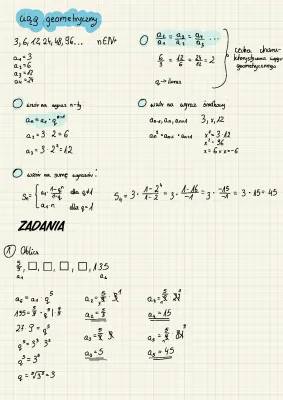 ciąg geometryczny
3, 6, 12, 24, 48, 96... n∈N+
a₁ = 3
a₂ = 6
a₃ = 12
a₄ = 24
a₂/a₁ = a₃/a₂ = a₄/a₃ ...
6/3 = 12/6 = 24/12 = 2
q → iloraz
cecha charakterystyczna ciągu geometrycznego
wzór na wyraz n-ty
aₙ = a₁ · qⁿ⁻¹
a₂ = 3 · 2 = 6
a₃ = 3 · 2² = 12
wzór na wyraz środkowy
aₙ₋₁, aₙ, aₙ₊₁
3, x, 12
aₙ² = aₙ₋₁ · aₙ₊₁
x² = 3 · 12
x² = 36
x = 6 v x = -6
wzór na sumę wyrazów:
Sₙ = { a₁ · (1-qⁿ)/(1-q) dla q≠1
a₁ · n dla q=1
S₄ = 3 · (1-2⁴)/(1-2) = 3 · (1-16)/(-1) = 3 · (-15)/(-1) = 3 · 15 = 45
ZADANIA
1 Oblicz
5/9, □, □, □, □, 135
a₁ a₆
a₆ = a₁ · q⁵
135 = 5/9 · q⁵ | · 9/5
27 · 9 = q⁵
q⁵ = 3² · 3³
q⁵ = 3⁵
q = ⁵√3⁵ = 3
a₂ = 5/9 · 3¹
a₂ = 5/3
a₃ = 5/3 · 3
a₃ = 5
a₄ = 15
a₅ = 45